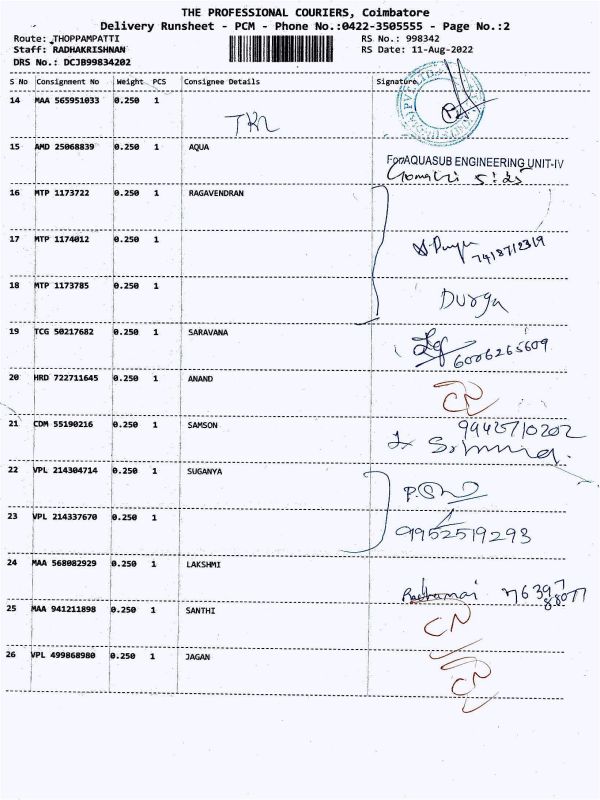 THE PROFESSIONAL COURIERS, Coimbatore
Delivery Runsheet - PCM - Phone No.:0422-3505555 - Page No.:2
Route: THOPPAMPATTI RS No.: 998342
Staff: RADHAKRISHNAN RS Date: 11-Aug-2022
DRS No.: DCJB99834202
S No Consignment No Weight PCS Consignee Details Signature
14 MAA 565951033 0.250 1
15 AMD 25068839 0.250 1 AQUA
For AQUASUB ENGINEERING UNIT-IV
16 MTP 1173722 0.250 1 RAGAVENDRAN
17 MTP 1174012 0.250 1
7418712319
18 MTP 1173785 0.250 1
Durga
19 TCG 50217682 0.250 1 SARAVANA
6006265609
20 HRD 722711645 0.250 1 ANAND
CN
21 CDM 55190216 0.250 1 SAMSON
9942710202
22 VPL 214304714 0.250 1 SUGANYA
23 VPL 214337670 0.250 1
9952519293
24 MAA 568082929 0.250 1 LAKSHMI
25 MAA 941211898 0.250 1 SANTHI
CN
26 VPL 499868980 0.250 1 JAGAN
CN